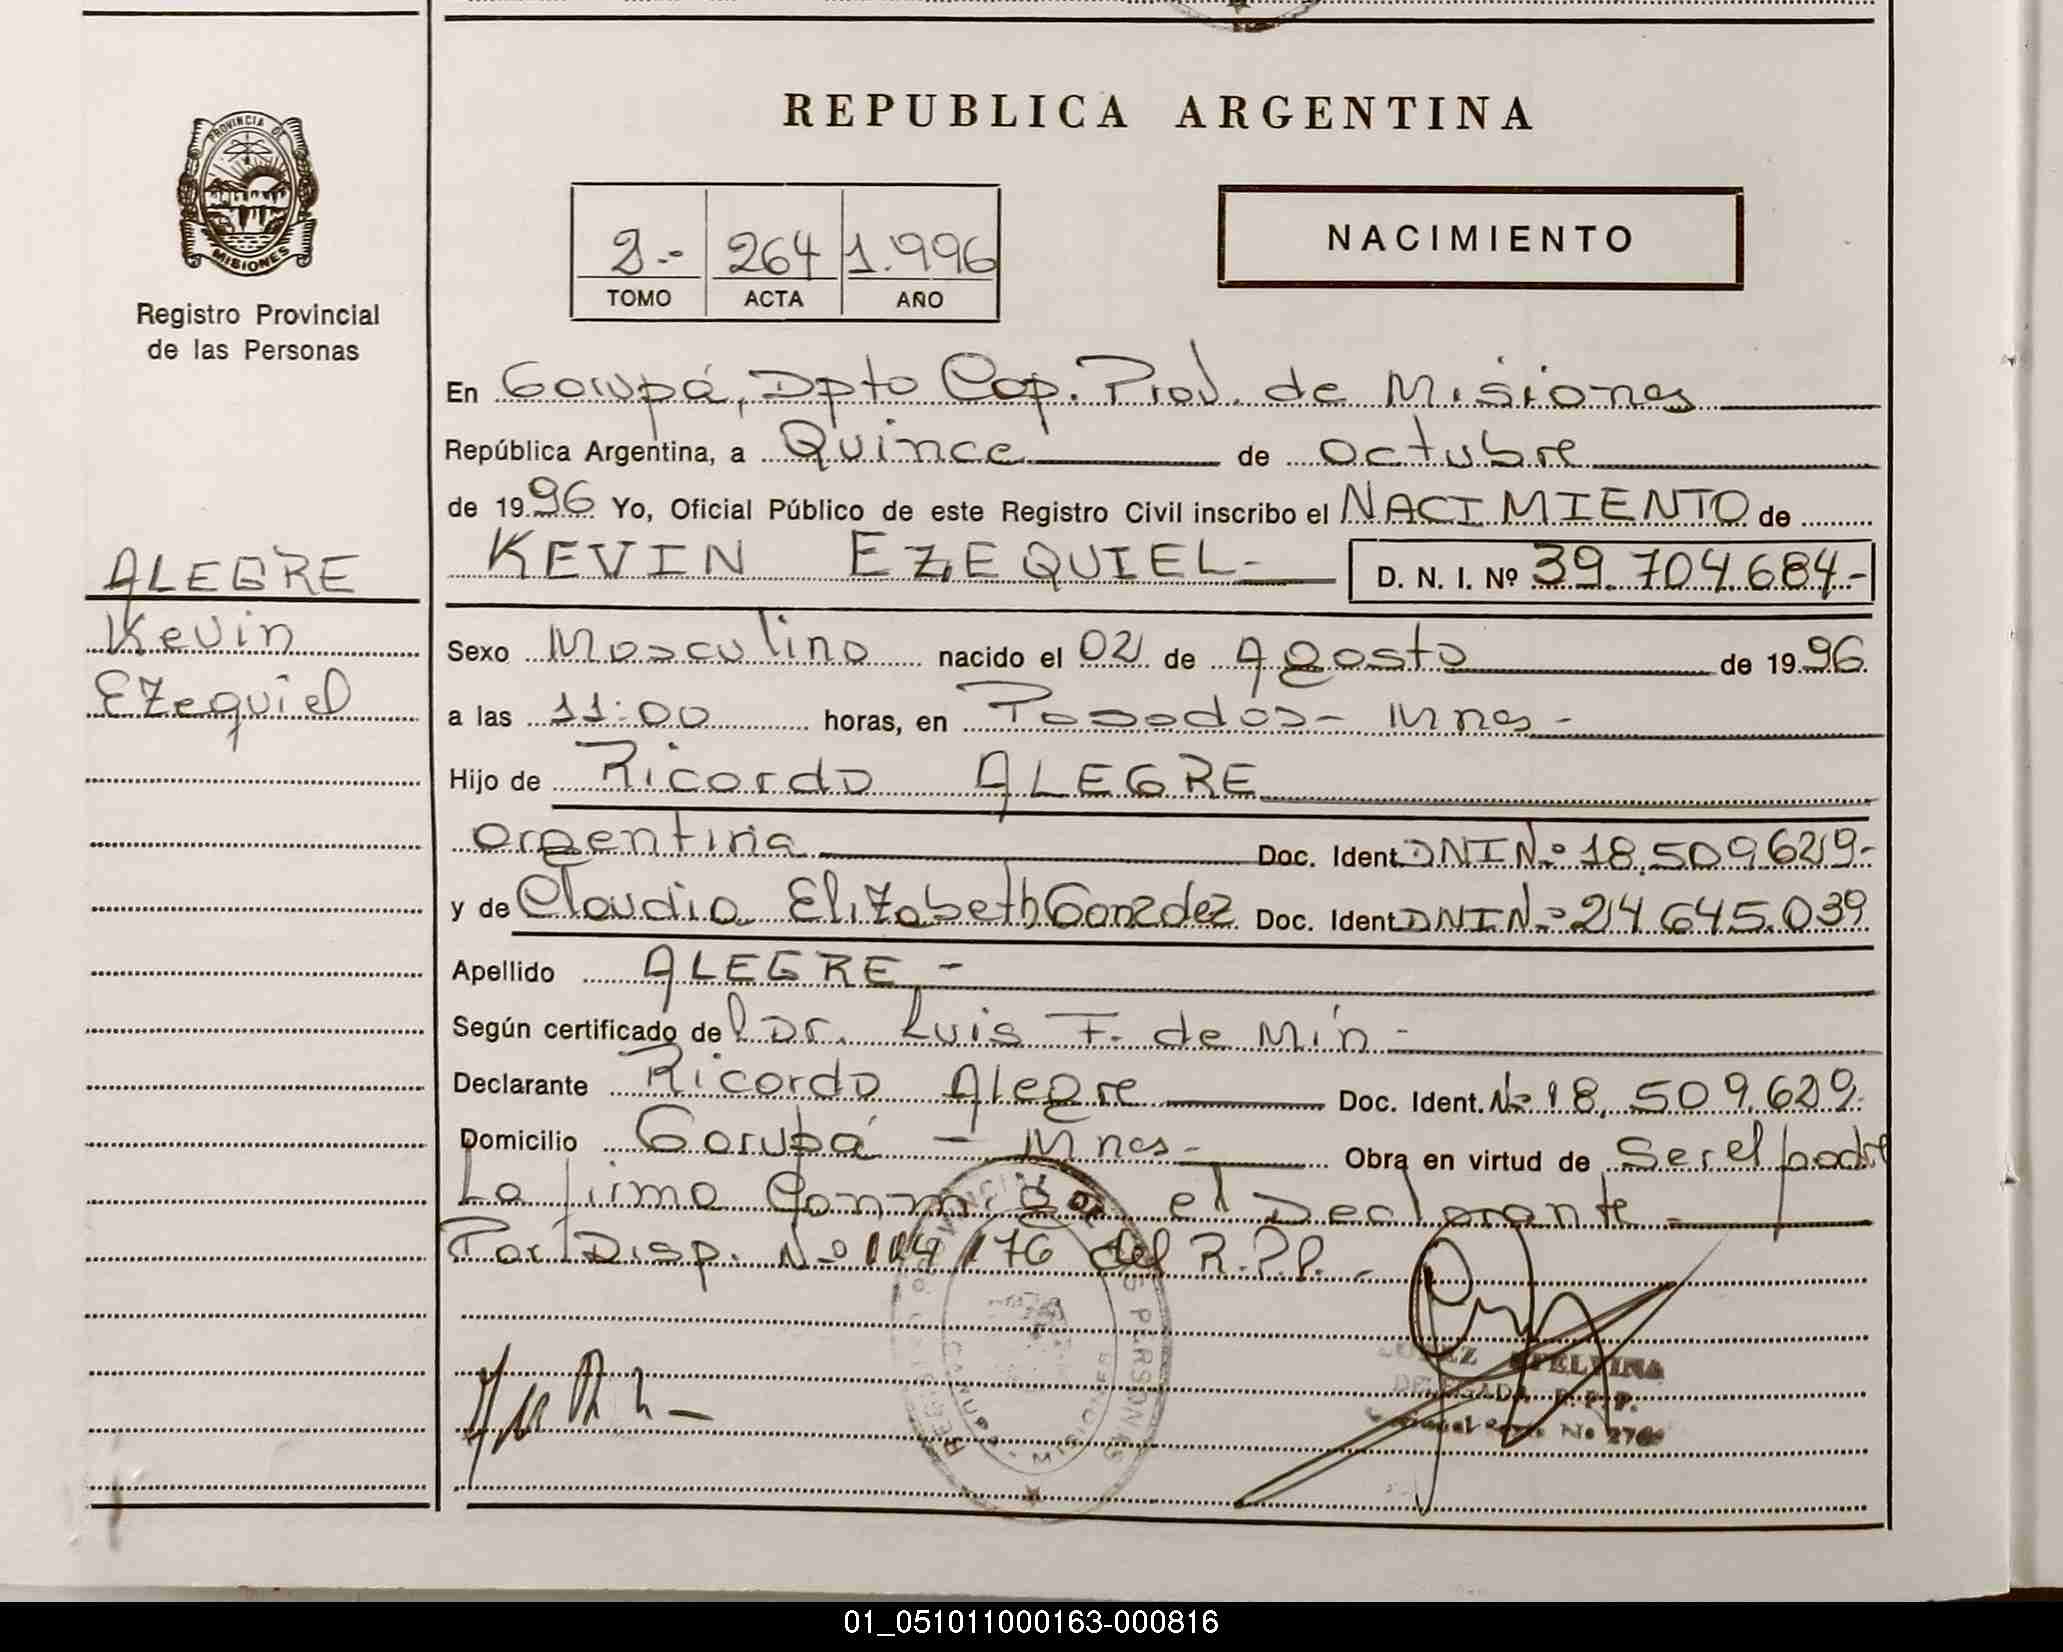 REPUBLICA ARGENTINA
PROVINCIA DE
MISIONES
Registro Provincial
de las Personas
2.- 264 1.996
TOMO ACTA AÑO
NACIMIENTO
En Garupá, Dpto Cap. Prov. de Misiones
República Argentina, a Quince de octubre
de 1996 Yo, Oficial Público de este Registro Civil inscribo el NACIMIENTO de
KEVIN EZEQUIEL- D. N. I. Nº 39.704.684.-
ALEGRE
Kevin
Ezequiel
Sexo Masculino nacido el 02 de Agosto de 1996
a las 11:00 horas, en Posadas- Mnes -
Hijo de Ricardo ALEGRE
argentina Doc. Ident. DNI Nº 18.509629-
y de Claudia Elizabeth Gonzalez Doc. Ident. DNI Nº 24.645.039
Apellido ALEGRE -
Según certificado del Dr. Luis F. de Min -
Declarante Ricardo Alegre Doc. Ident. Nº 18.509.629
Domicilio Garupá - Mnes- Obra en virtud de Ser el padre
La firma conmigo el Declarante -
Por Disp. Nº 114/76 del R.P.P. -
REGISTRO PROVINCIAL DE LAS PERSONAS
GARUPA - MISIONES
LOPEZ ETELVINA
DELEGADA R.P.P.
01_051011000163-000816